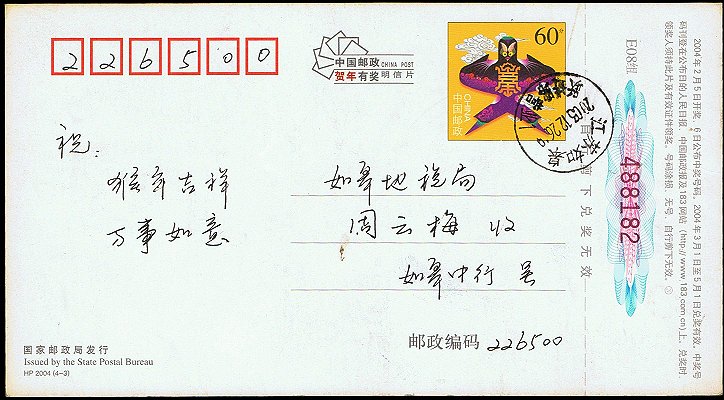 226500
中国邮政 CHINA POST
贺年有奖 明信片
60分
中国邮政
CHINA
江苏如皋
2003.12.26
祝：
猴年吉祥
万事如意
如皋地税局
周云梅 收
如皋中行
邮政编码 226500
国家邮政局发行
Issued by the State Postal Bureau
HP 2004 (4-3)
前下兑奖无效
E08组
488182
2004年2月5日开奖，6日公布中奖号码。2004年3月1日至5月1日兑奖有效。中奖号
码刊登在公布日的人民日报、中国邮政报及183网站（http://www.183.com.cn)上。兑奖时，
领奖人须持此片及有效证件领奖。号码涂损 无号、自行剪下无效。③